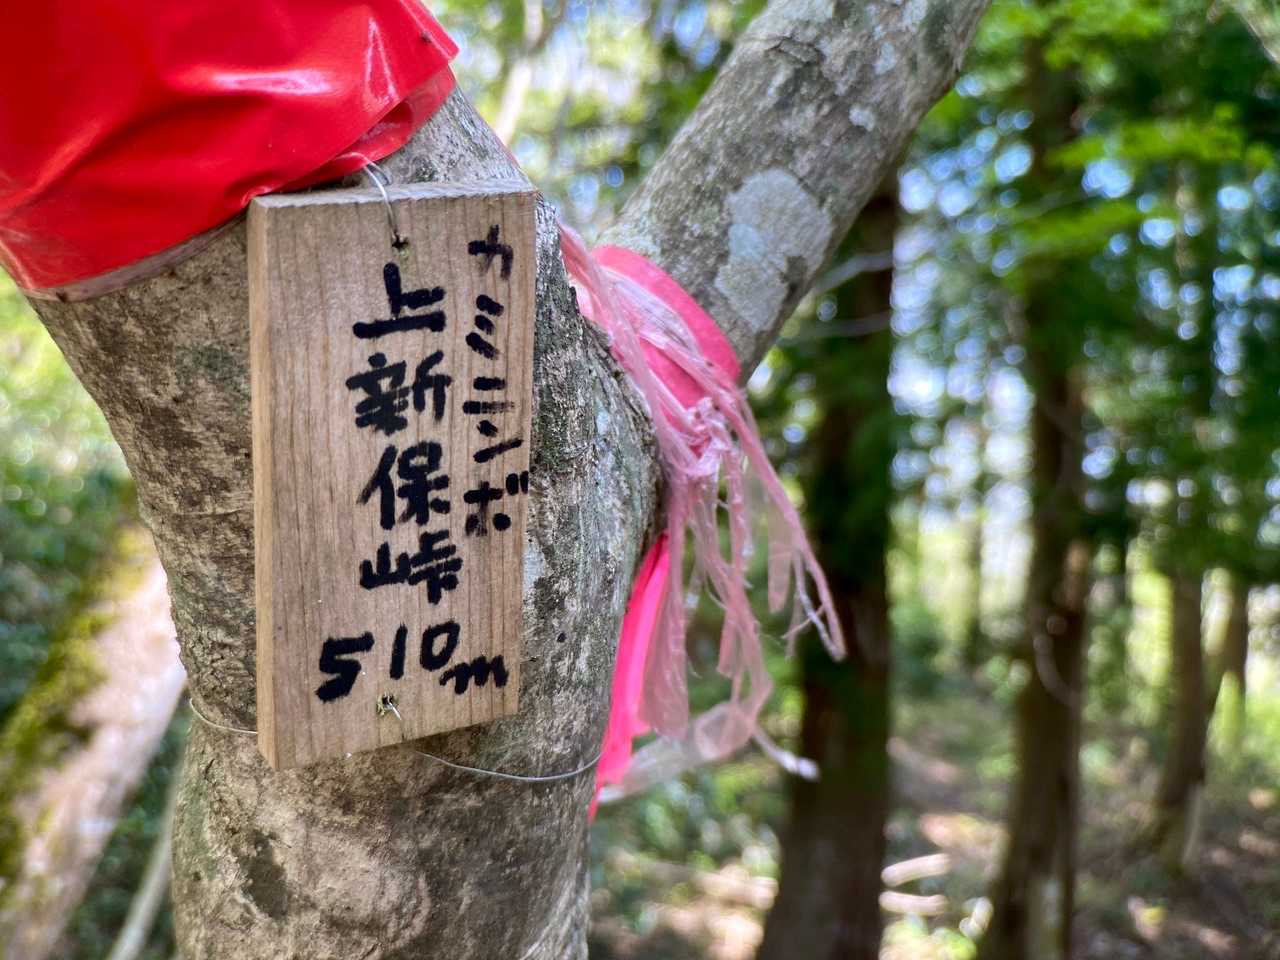 カミニンボ
上新保峠
510m